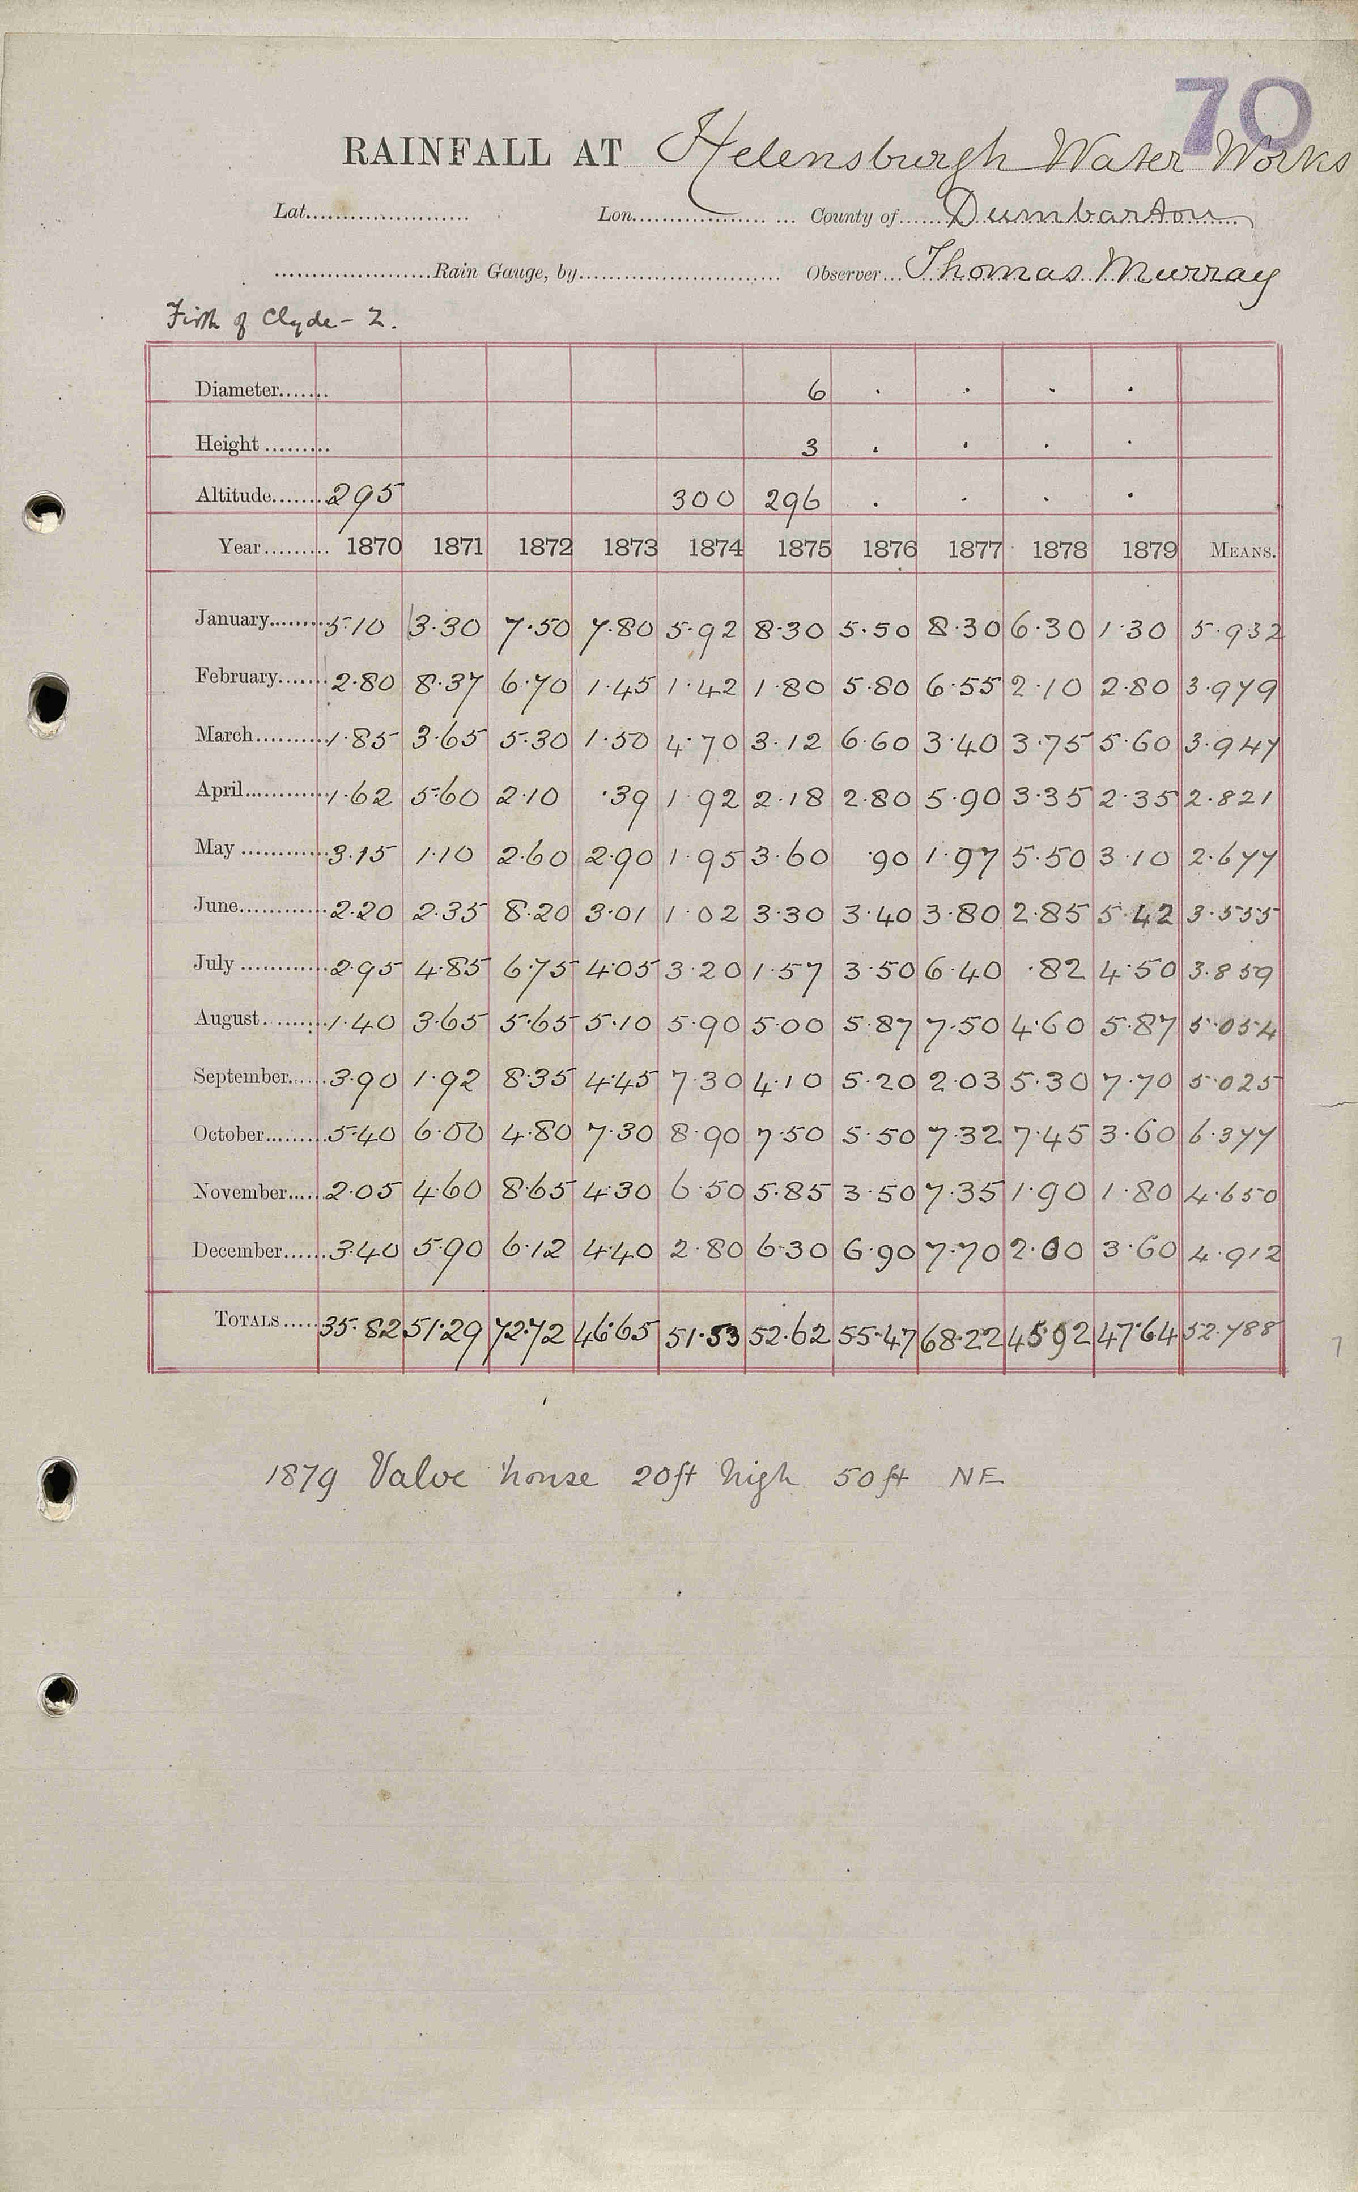 70
RAINFALL AT Helensburgh Water Works
Lat. Lon. County of Dumbarton
Rain Gauge, by Observer Thomas Murray
Firth of Clyde - 2.
Diameter 6 . . . .
Height 3 . . . .
Altitude 295 300 296 . . . .
Year 1870 1871 1872 1873 1874 1875 1876 1877 1878 1879 MEANS.
January 5·10 3·30 7·50 7·80 5·92 8·30 5·50 8·30 6·30 1·30 5·932
February 2·80 8·37 6·70 1·45 1·42 1·80 5·80 6·55 2·10 2·80 3·979
March 1·85 3·65 5·30 1·50 4·70 3·12 6·60 3·40 3·75 5·60 3·947
April 1·62 5·60 2·10 ·39 1·92 2·18 2·80 5·90 3·35 2·35 2·821
May 3·15 1·10 2·60 2·90 1·95 3·60 ·90 1·97 5·50 3·10 2·677
June 2·20 2·35 8·20 3·01 1·02 3·30 3·40 3·80 2·85 5·42 3·555
July 2·95 4·85 6·75 4·05 3·20 1·57 3·50 6·40 ·82 4·50 3·859
August 1·40 3·65 5·65 5·10 5·90 5·00 5·87 7·50 4·60 5·87 5·054
September 3·90 1·92 8·35 4·45 7·30 4·10 5·20 2·03 5·30 7·70 5·025
October 5·40 6·00 4·80 7·30 8·90 7·50 5·50 7·32 7·45 3·60 6·377
November 2·05 4·60 8·65 4·30 6·50 5·85 3·50 7·35 1·90 1·80 4·650
December 3·40 5·90 6·12 4·40 2·80 6·30 6·90 7·70 2·00 3·60 4·912
TOTALS 35·82 51·29 72·72 46·65 51·53 52·62 55·47 68·22 45·92 47·64 52·788
1879 Valve house 20ft high 50ft NE